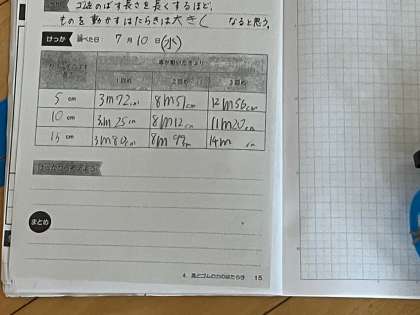 ゴムをのばす長さを長くするほど、
ものを動かすはたらきは大きく なると思う。
けっか 調べた日: 7 月 10 日(水)
車が動いたきょり
1回め 2回め 3回め
5 cm 3m72cm 8m51cm 12m56cm
10 cm 3m25cm 8m12cm 11m20cm
15 cm 3m80cm 8m99cm 14m cm
けっかから考えよう
まとめ
4. 風とゴムの力のはたらき 15